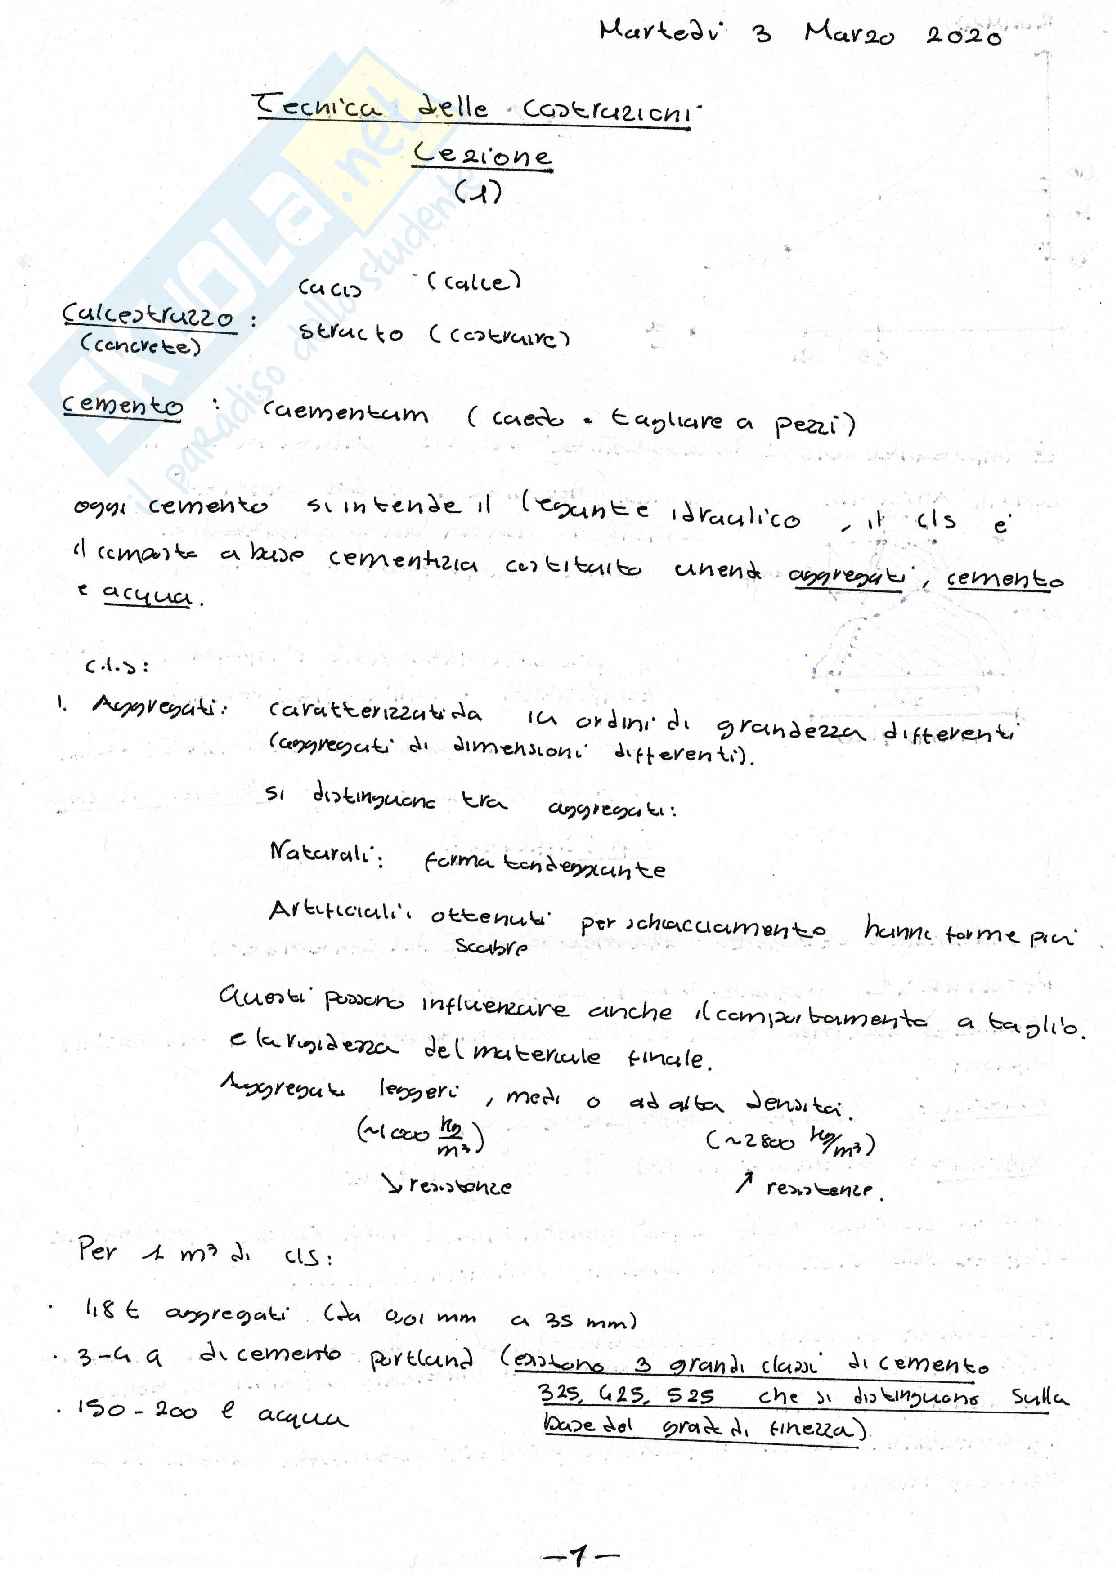 Martedì 3 Marzo 2020
Tecnica delle Costruzioni
Lezione
(1)
SKUOLA.net
il paradiso dello studente
calcis (calce)
Calcestruzzo :
(concrete)
structo (costruire)
cemento : caementum (caedo = tagliare a pezzi)
oggi cemento si intende il legante idraulico, il cls è
il composto a base cementizia costituito unendo aggregati, cemento
e acqua.
c.l.s:
1. Aggregati: caratterizzati da in ordini di grandezza differenti
(aggregati di dimensioni differenti).
si distinguono tra aggregati:
Naturali: forma tondeggiante
Artificiali: ottenuti per schiacciamento hanno forme più
scabre
Questi possono influenzare anche il comportamento a taglio.
e la rigidezza del materiale finale.
Aggregati leggeri, medi o ad alta densità.
(~1000 kg/m³) (~2800 kg/m³)
↘ resistenze ↗ resistenze.
Per 1 m³ di cls:
· 1,8 t aggregati (da 0,01 mm a 35 mm)
· 3-4 q di cemento portland (esistono 3 grandi classi di cemento
325, 425, 525 che si distinguono sulla
· 150-200 l acqua
base del grado di finezza)
-1-